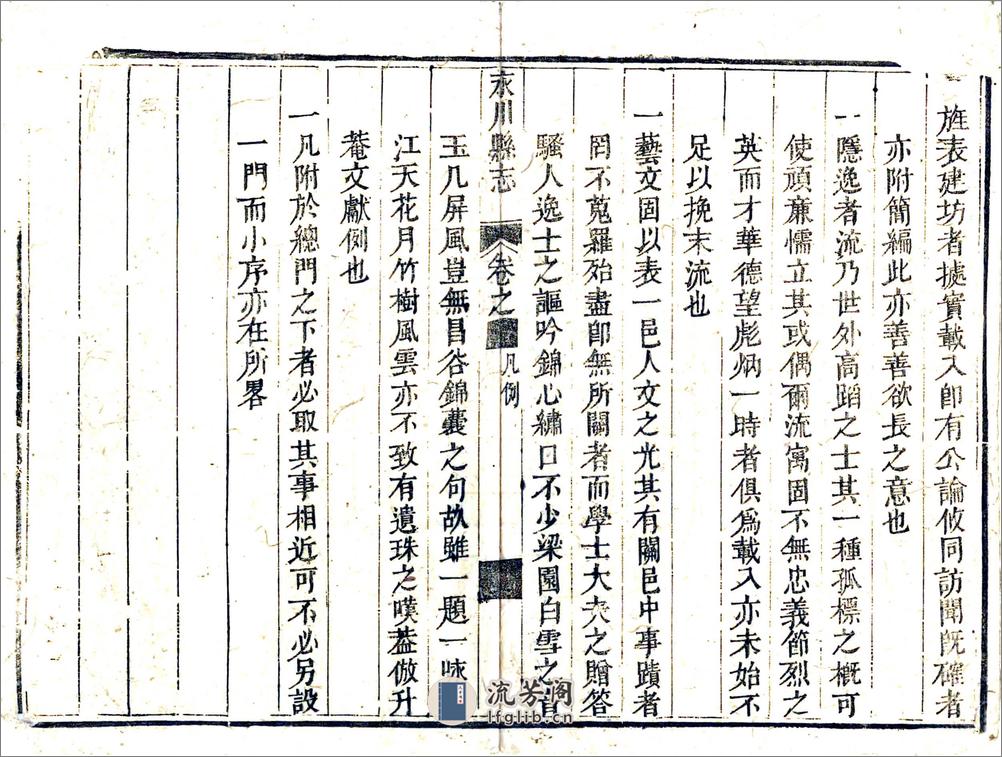 旌表建坊者據實載入卽有公論攸同訪聞旣確者
亦附簡編此亦善善欲長之意也
一隱逸者流乃世外高蹈之士其一種孤標之概可
使頑亷懦立其或偶爾流寓固不無忠義節烈之
英而才華德望彪炳一時者俱爲載入亦未始不
足以挽末流也
一藝文固以表一邑人文之光其有關邑中事蹟者
罔不蒐羅殆盡卽無所關者而學士大夫之贈答
騷人逸士之謳吟錦心繡口不少梁園白雪之
永川縣志
卷之
凡例
玉几屏風豈無昌谷錦囊之句故雖一題一咏
江天花月竹樹風雲亦不致有遺珠之嘆葢倣升
菴文獻例也
一凡附於總門之下者必取其事相近可不必另設
一門而小序亦在所畧
流芳阁
lfglib.cn